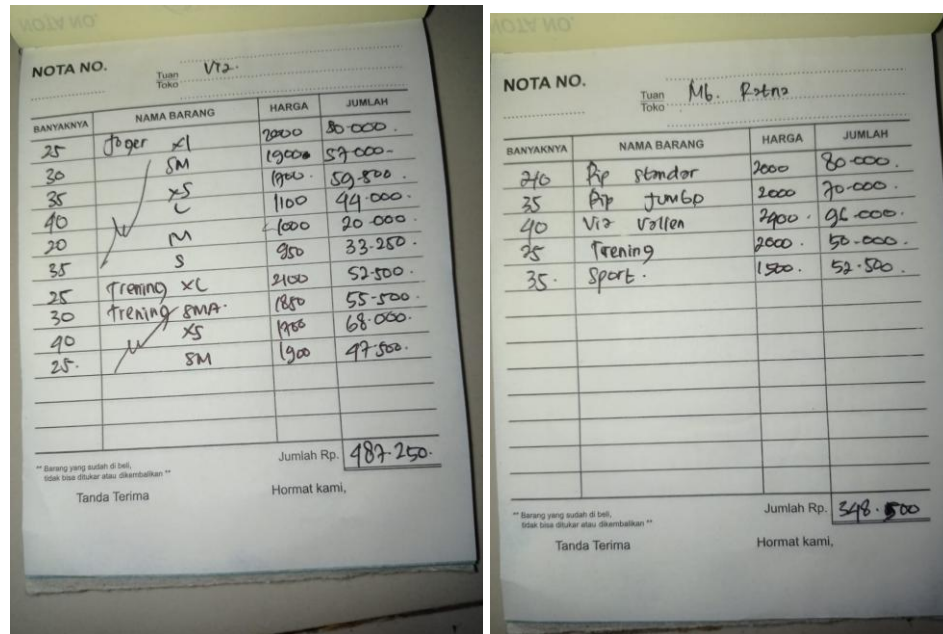 NOTA NO.
Tuan
Toko
Via.
BANYAKNYA NAMA BARANG HARGA JUMLAH
25 Joger xl 2000 80.000.
30 SM 1900 57.000-
35 XS 1700. 59.800.
40 L 1100 44.000.
20 M 1000 20.000.
35 S 950 33.250.
25 Trening XL 2100 52.500.
30 Trening SMA. 1850 55.500.
40 XS 1700 68.000.
25. SM 1900 47.500.
Jumlah Rp. 487.250.
** Barang yang sudah di beli,
tidak bisa ditukar atau dikembalikan **
Tanda Terima Hormat kami,
NOTA NO.
Tuan
Toko
Mb. Ratna
BANYAKNYA NAMA BARANG HARGA JUMLAH
40 Pip standar 2000 80.000.
35 Pip Jumbo 2000 70.000.
40 Via Vallen 2400. 96.000.
25 Trening 2000. 50.000.
35. Sport. 1500. 52.500.
Jumlah Rp. 348.500
** Barang yang sudah di beli,
tidak bisa ditukar atau dikembalikan **
Tanda Terima Hormat kami,